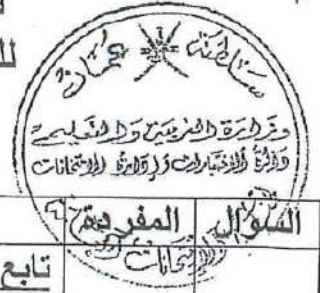 لل
سلطنة عمان
وزارة التربية والتعليم
دائرة الاختبارات وإدارة الامتحانات
السؤال المفردة
تابع